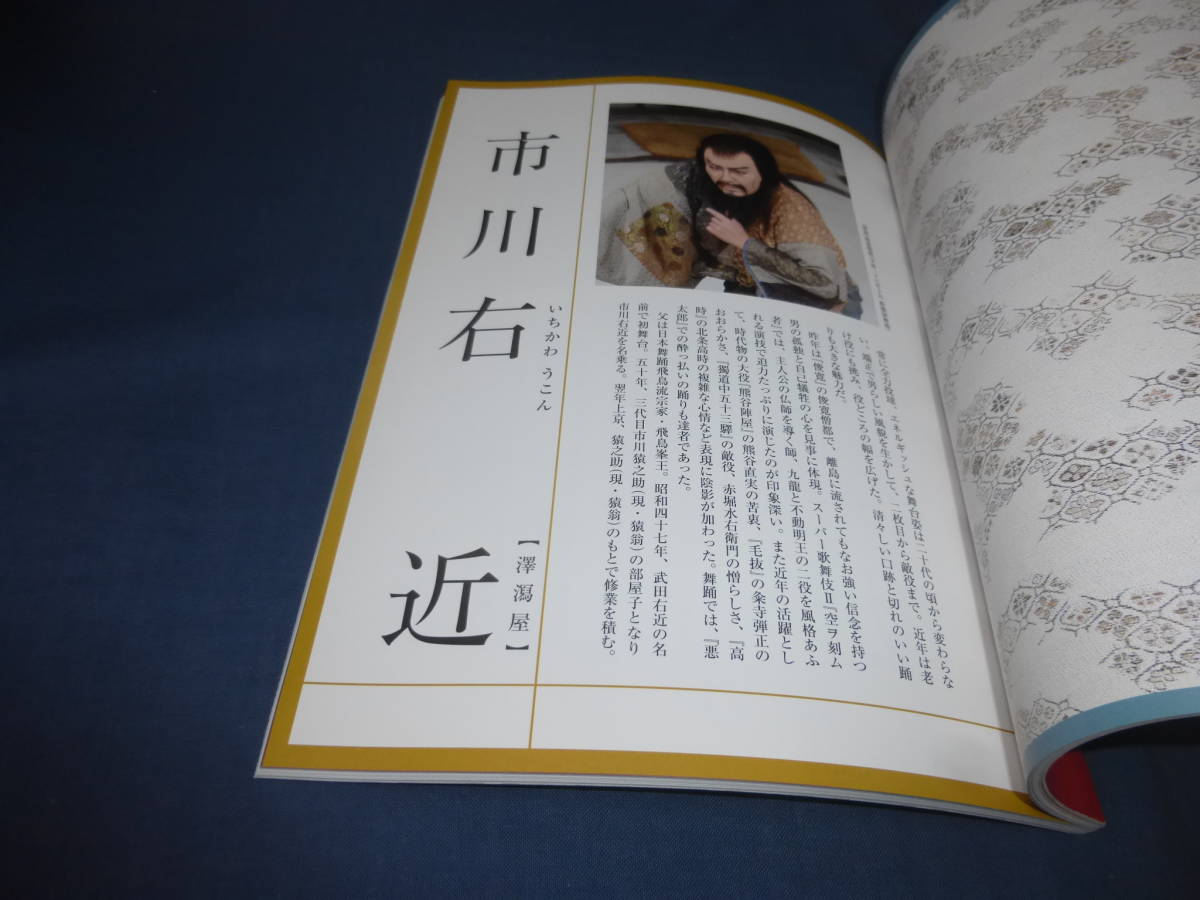 市川右近
いちかわ うこん
【澤瀉屋】
常に全力投球、エネルギッシュな舞台姿は二十代の頃から変わらな
い。端正で男らしい風貌を生かして、二枚目から敵役まで。近年は老
け役にも挑み、役どころの幅を広げた。清々しい口跡と切れのいい踊
りも大きな魅力だ。
昨年は『俊寛』の俊寛僧都で、離島に流されてもなお強い信念を持つ
男の孤独と自己犠牲の心を見事に体現。スーパー歌舞伎Ⅱ『空ヲ刻ム
者』では、主人公の仏師を導く師、九龍と不動明王の二役を風格あふ
れる演技で迫力たっぷりに演じたのが印象深い。また近年の活躍とし
て、時代物の大役『熊谷陣屋』の熊谷直実の苦衷、『毛抜』の粂寺弾正の
おおらかさ、『獨道中五十三驛』の敵役、赤堀水右衛門の憎らしさ、『高
時』の北条高時の複雑な心情など表現に陰影が加わった。舞踊では、『悪
太郎』での酔っ払いの踊りも達者であった。
父は日本舞踊飛鳥流宗家・飛鳥峯王。昭和四十七年、武田右近の名
前で初舞台。五十年、三代目市川猿之助(現・猿翁)の部屋子となり
市川右近を名乗る。翌年上京、猿之助(現・猿翁)のもとで修業を積む。